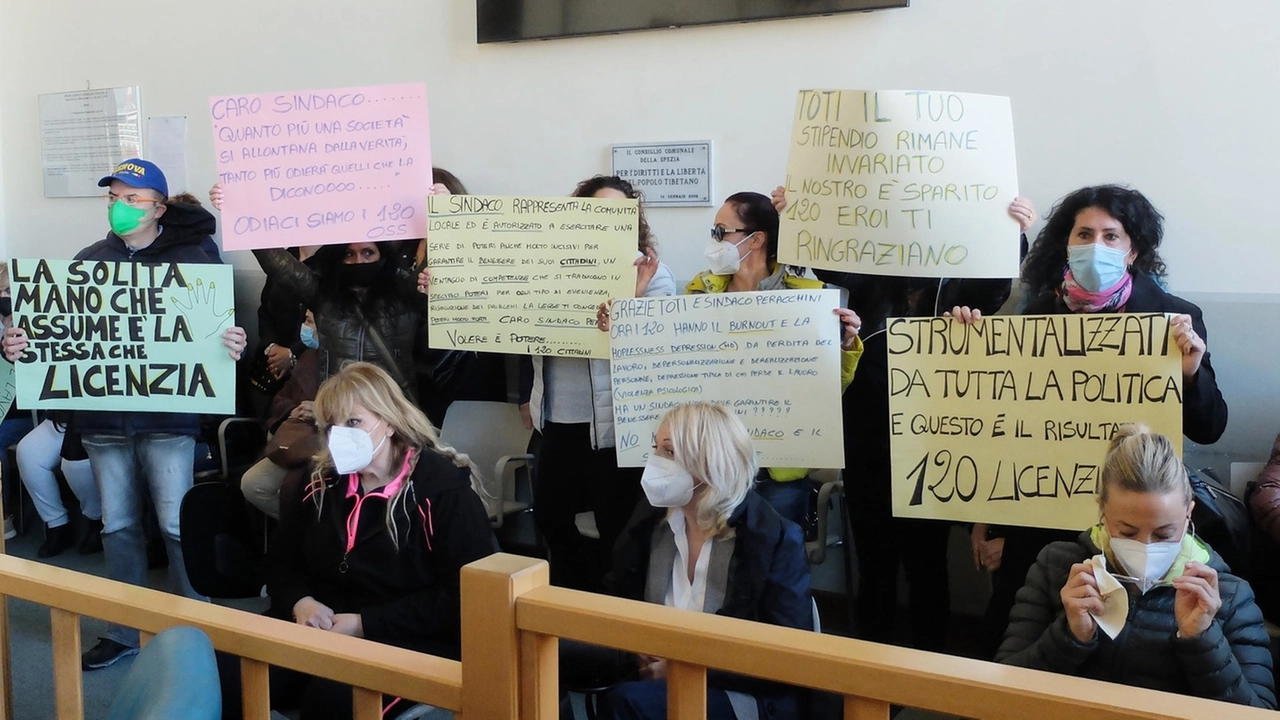 CARO SINDACO.......
"QUANTO PIÙ UNA SOCIETÀ
SI ALLONTANA DALLA VERITÀ,
TANTO PIÙ ODIERÀ QUELLI CHE LA
DICONOOOO....."
ODIACI SIAMO I 120
OSS
LA SOLITA
MANO CHE
ASSUME E' LA
STESSA CHE
LICENZIA
IL SINDACO RAPPRESENTA LA COMUNITA'
LOCALE ED È AUTORIZZATO A ESERCITARE UNA
SERIE DI POTERI ANCHE MOLTO INCISIVI PER
GARANTIRE IL BENESSERE DEI SUOI CITTADINI. UN
VENTAGLIO DI COMPETENZE CHE SI TRADUCONO IN
SPECIALI POTERI PER OGNI TIPO DI EVENIENZA
CARO SINDACO
VOLERE È POTERE....
I 120 CITTADINI
IL CONSIGLIO COMUNALE
DELLA SPEZIA
PER I DIRITTI E LA LIBERTÀ
DEL POPOLO TIBETANO
TOTI IL TUO
STIPENDIO RIMANE
INVARIATO
IL NOSTRO È SPARITO
120 EROI TI
RINGRAZIANO
GRAZIE TOTI E SINDACO PERACCHINI
ORA I 120 HANNO IL BURNOUT E LA
HOPLESSNESS DEPRESSION (HD) DA PERDITA DEL
LAVORO, DEPERSONALIZZAZIONE E DEREALIZZAZIONE
PERSONALE, DEPRESSIONE TIPICA DI CHI PERDE IL LAVORO
(VIOLENZA PSICOLOGICA)
HA UN SINDACO DEVE GARANTIRE IL
BENESSERE ?????
NO E IL
STRUMENTALIZZATI
DA TUTTA LA POLITICA
E QUESTO É IL RISULTA
120 LICENZI